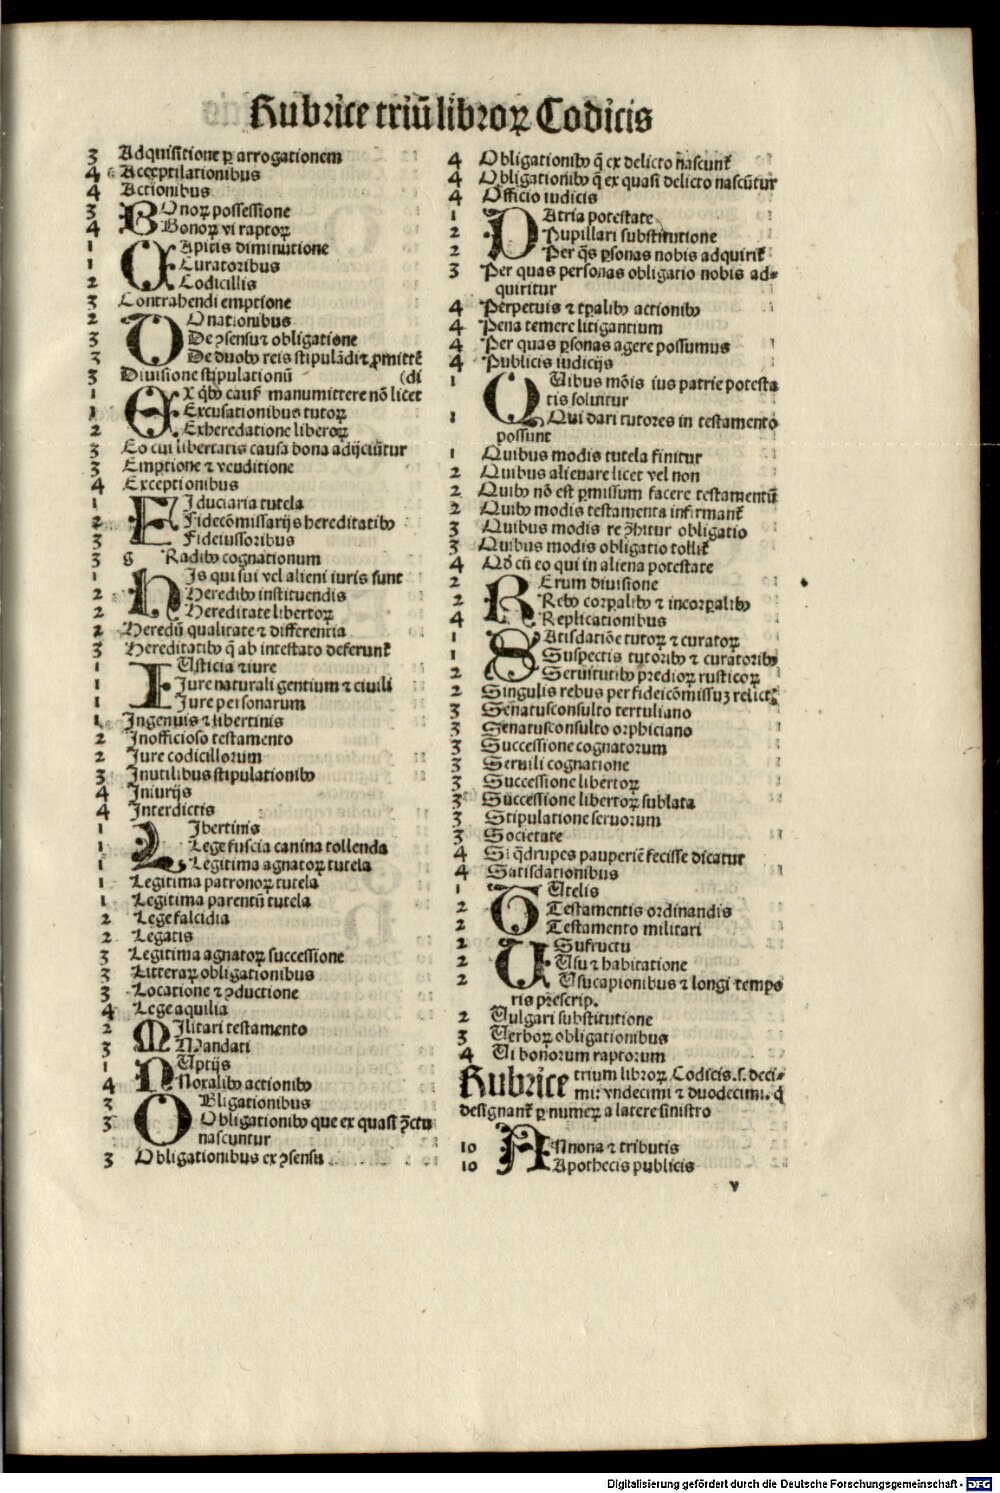 Rubrice triū libroꝝ Codicis
3 Adquisitione ꝑ arrogationem
4 Acceptilationibus
4 Actionibus
3 BOnoꝝ possessione
4 Bonoꝝ vi raptoꝝ
1 CApitis diminutione
1 Curatoribus
2 Codicillis
3 Contrahendi emptione
2 DOnationibus
3 De ꝯsensu ⁊ obligatione
3 De duobꝰ reis stipulādi ⁊ ꝓmittē
3 Diuisione stipulationū (di
1 EX qͥbꝰ cauẜ manumittere nō licet
1 Excusationibus tutoꝝ
2 Exheredatione liberoꝝ
3 Eo cui libertatis causa bona adijciūtur
3 Emptione ⁊ venditione
4 Exceptionibus
1 FIduciaria tutela
2 Fidecōmissarijs hereditatibꝰ
3 Fideiussoribus
3 g Radibꝰ cognationum
1 HIs qui sui vel alieni iuris sunt
2 Heredibꝰ instituendis
2 Hereditate libertoꝝ
2 Heredū qualitate ⁊ differentia
3 Hereditatibꝰ q̄ ab intestato deferunt̄
1 IUsticia ⁊ iure
1 Jure naturali gentium ⁊ ciuili
1 Jure personarum
1 Ingenuis ⁊ libertinis
2 Inofficioso testamento
2 Jure codicillorum
3 Inutilibus stipulationibꝰ
4 Iniurijs
4 Interdictis
1 LIbertinis
1 Lege fuscia canina tollenda
1 Legitima agnatoꝝ tutela
1 Legitima patronoꝝ tutela
1 Legitima parentū tutela
2 Lege falcidia
2 Legatis
3 Legitima agnatoꝝ successione
3 Litteraꝝ obligationibus
3 Locatione ⁊ ꝯductione
4 Lege aquilia
2 MIlitari testamento
3 Mandati
1 NUptijs
4 Noxalibꝰ actionibꝰ
3 OBligationibus
3 Obligationibꝰ que ex quasi ꝯ̄ctu
nascuntur
3 Obligationibus ex ꝯsensu
4 Obligationibꝰ q̄ ex delicto nascunt̄
4 Obligationibꝰ q̄ ex quasi delicto nascūtur
4 Officio iudicis
1 PAtria potestate
2 Pupillari substitutione
2 Per q̄s ꝑsonas nobis adquirit̄
3 Per quas personas obligatio nobis ad-
quiritur
4 Perpetuis ⁊ tꝑalibꝰ actionibꝰ
4 Pena temere litigantium
4 Per quas ꝑsonas agere possumus
4 Publicis iudicijs
1 QUibus mōis ius patrie potesta
tis soluitur
1 Qui dari tutores in testamento
possunt
1 Quibus modis tutela finitur
2 Quibus alienare licet vel non
2 Quibꝰ nō est ꝑmissum facere testamentū
2 Quibꝰ modis testamenta infirmant̄
3 Quibus modis re ꝯ̄hitur obligatio
3 Quibus modis obligatio tollit̄
4 Qđ cū eo qui in aliena potestate
2 RErum diuisione
2 Rebꝰ corꝑalibꝰ ⁊ incorꝑalibꝰ
4 Replicationibus
1 SAtisdatiōe tutoꝝ ⁊ curatoꝝ
1 Suspectis tutoribꝰ ⁊ curatoribꝰ
2 Seruitutibꝰ predioꝝ rusticoꝝ
2 Singulis rebus per fideicōmissuꝫ relictꝭ
3 Senatusconsulto tertuliano
3 Senatusconsulto orphiciano
3 Successione cognatorum
3 Seruili cognatione
3 Successione libertoꝝ
3 Successione libertoꝝ sublata
3 Stipulatione seruorum
3 Societate
4 Si q̄drupes pauperiē fecisse dicatur
4 Satisdationibus
1 TUtelis
2 Testamentis ordinandis
2 Testamento militari
2 USufructu
2 Usu ⁊ habitatione
2 Usucapionibus ⁊ longi tempo
ris prescrip.
2 Uulgari substitutione
3 Uerboꝝ obligationibus
4 Ui bonorum raptorum
Rubrice trium libroꝝ Codicis .s. deci-
mi: vndecimi ⁊ duodecimi. q̄
designant̄ ꝑ numeꝝ a latere sinistro
10 ANnona ⁊ tributis
10 Apothecis publicis
v
Digitalisierung gefördert durch die Deutsche Forschungsgemeinschaft - DFG